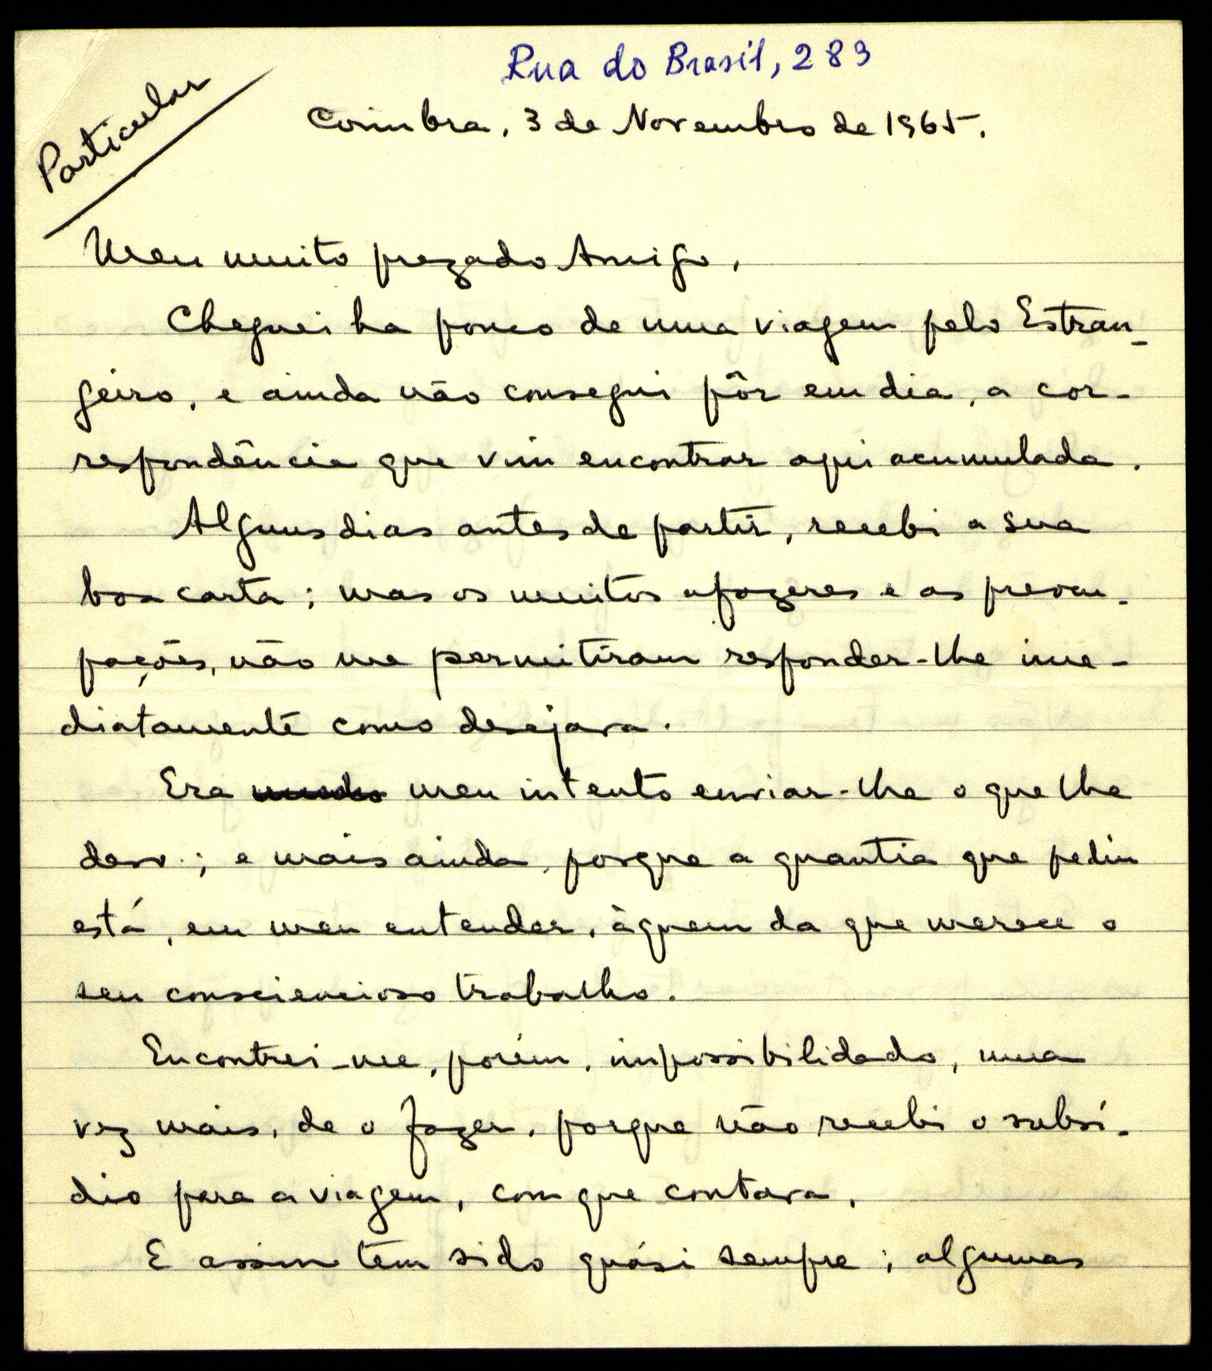 Rua do Brasil, 283
Particular
Coimbra, 3 de Novembro de 1965.
Meu muito prezado Amigo,
Cheguei ha pouco de uma viagem pelo Estran-
geiro, e ainda não consegui pôr em dia, a cor-
respondência que vim encontrar aqui acumulada.
Alguns dias antes de partir, recebi a sua
boa carta; mas os muitos afazeres e as preocu-
pações, não me permitiram responder-lhe ime-
diatamente como desejara.
Era meu intento enviar-lhe o que lhe
devo; e mais ainda, porque a quantia que pediu
está, em meu entender, àquem da que merece o
seu consciencioso trabalho.
Encontrei-me, porém, impossibilidado, uma
vez mais, de o fazer, porque não recebi o subsí-
dio para a viagem, com que contara.
E assim tem sido quási sempre; algumas